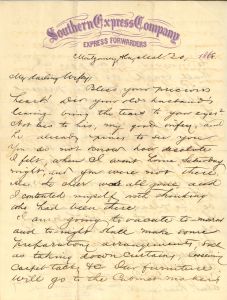 Southern Express Company
EXPRESS FORWARDERS
Montgomery, Ala. 20, 186
My darling Wifey,
Bless your precious
heart! Did your old husband's
leaving bring the tears to your eyes?
God bless his own, good wifey, and
he already pines to see you.
You do not know how desolate
I felt, when I went home Saturday
night, and you were not there
and
I contented myself with thinking
she had been there.
I am going to vacate to-morrow
and to-night shall make some
preparatory arrangements, such
as taking down curtains,
carpet tacks, &c. Our furniture
will go to the